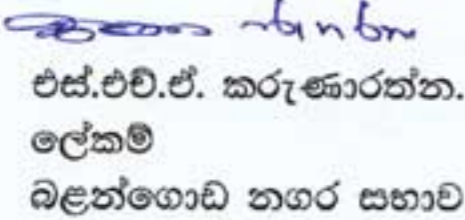 එස්.එච්.ඒ. කරුණාරත්න.
ලේකම්
බළන්ගොඩ නගර සභාව